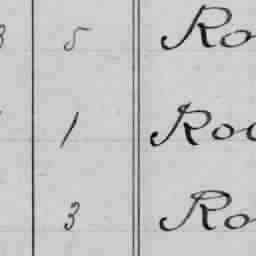 5 Ro
1 Roo
3 Ro